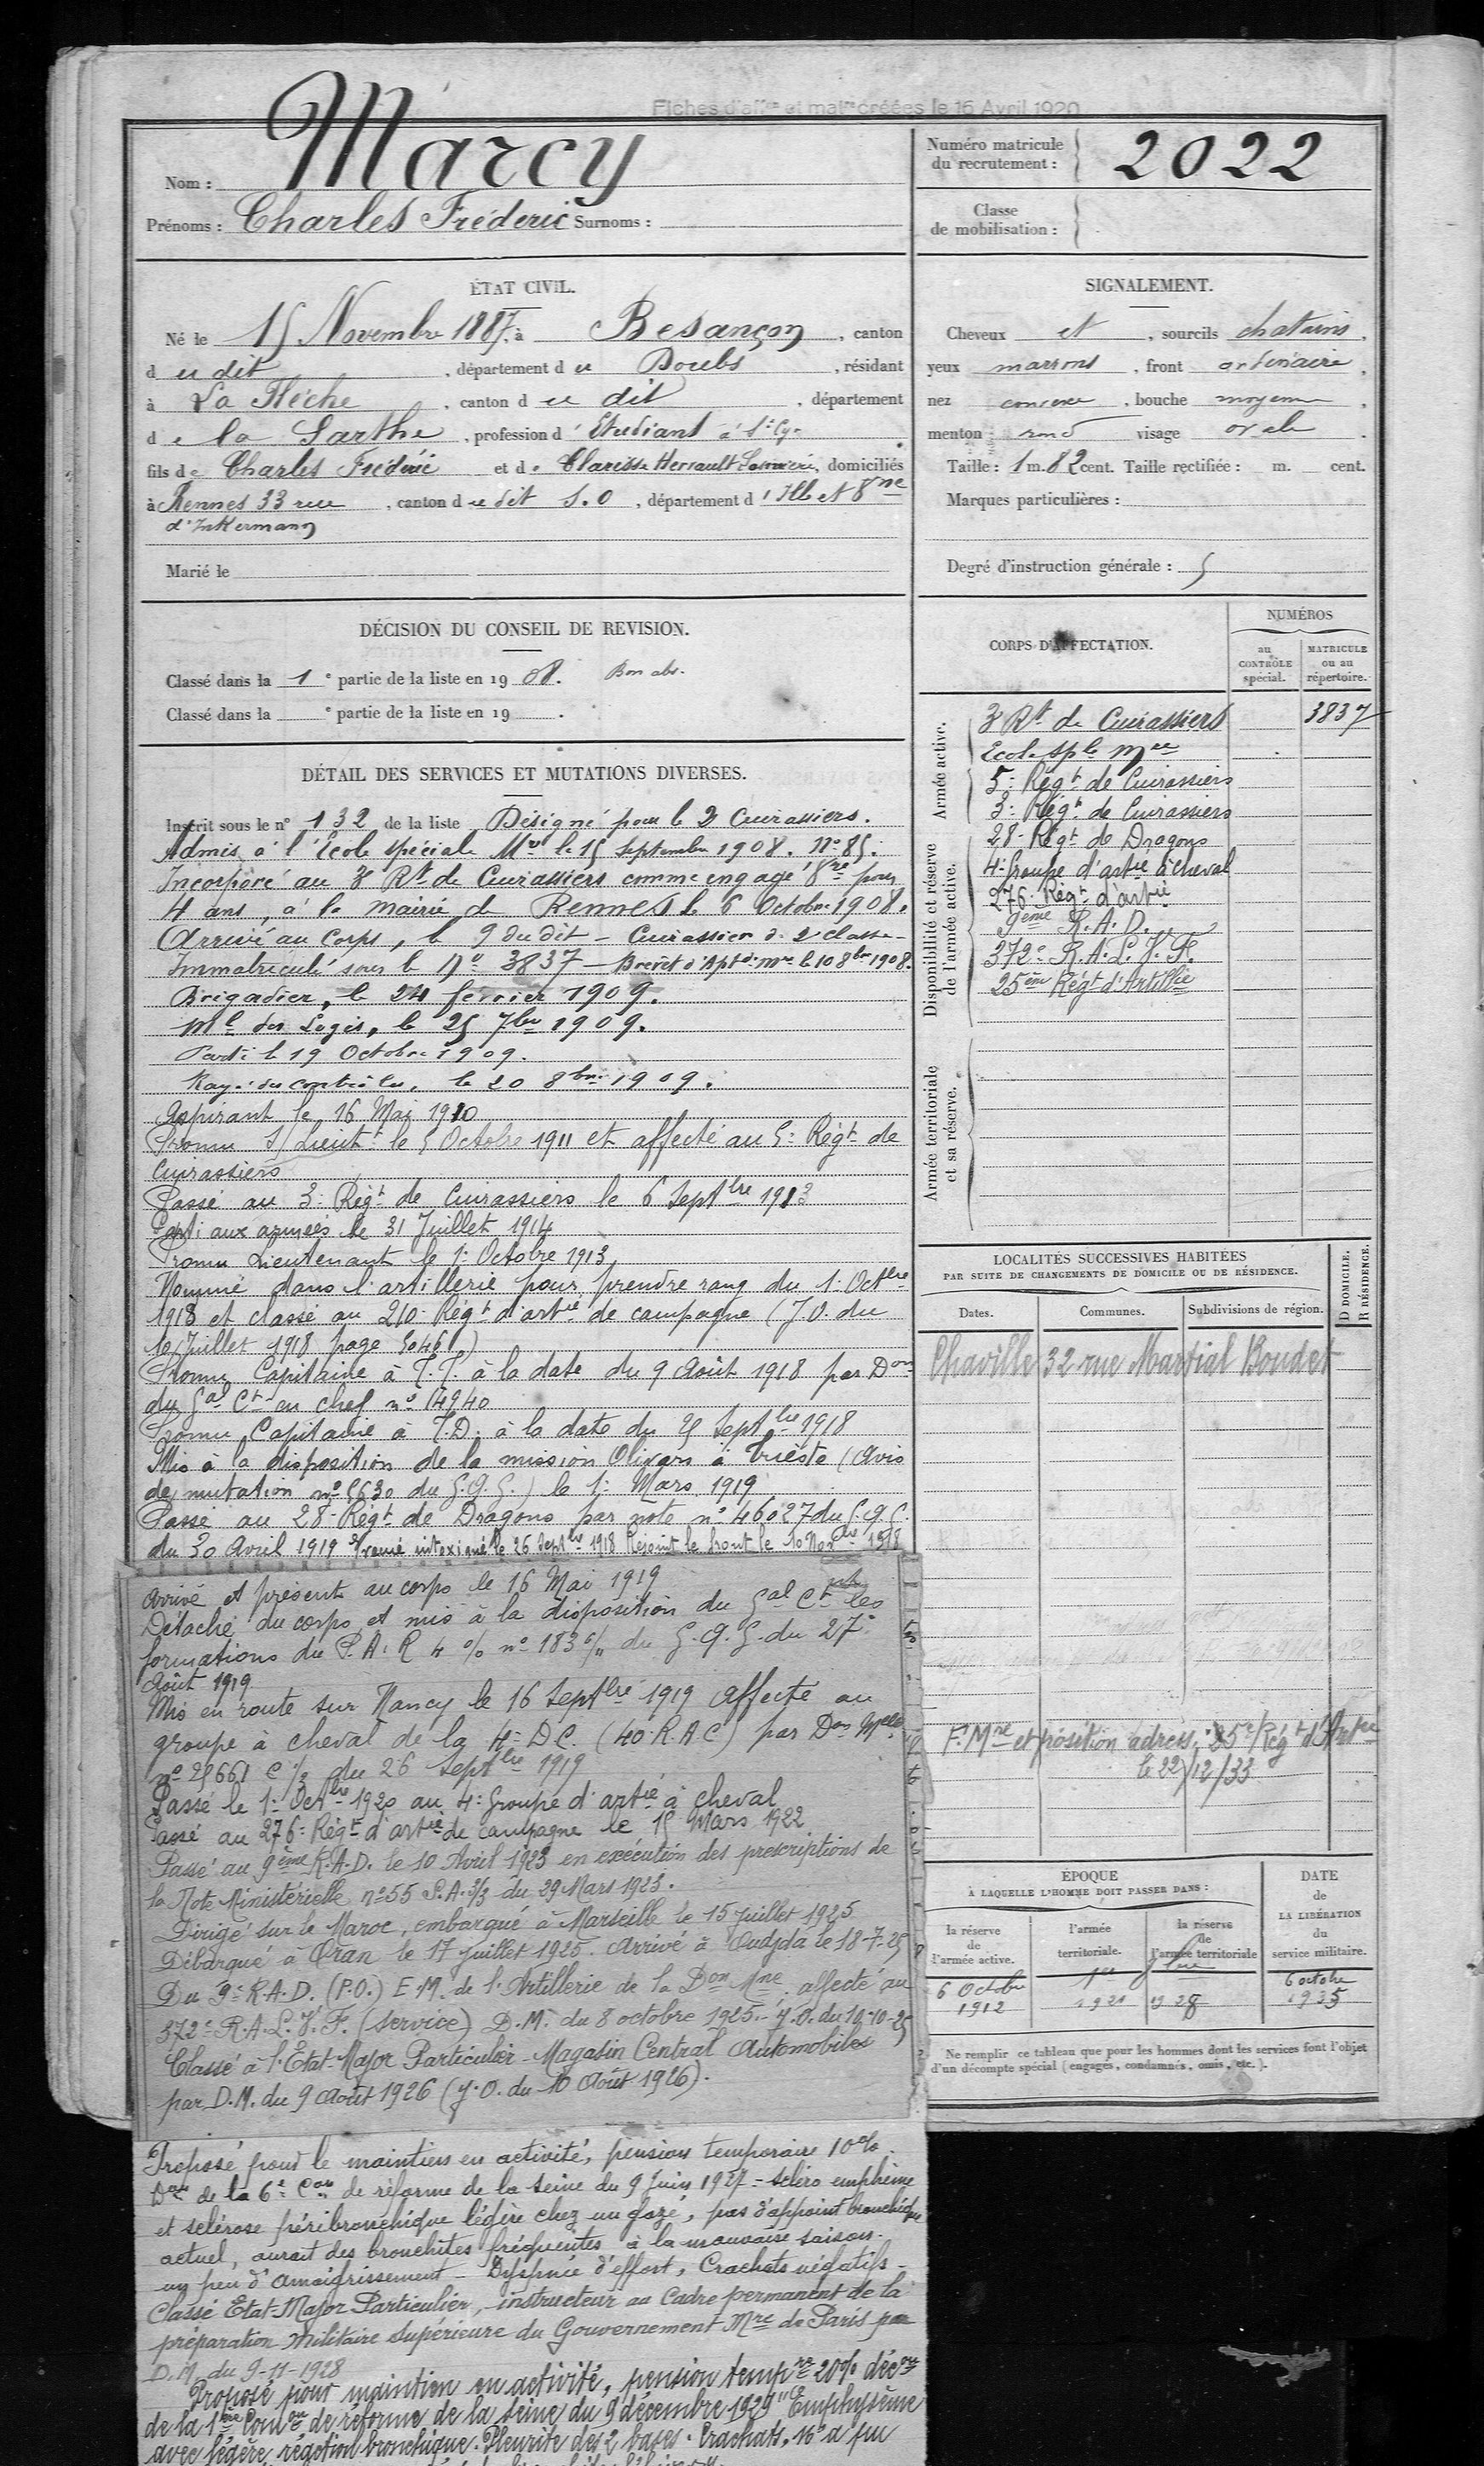 Fiches d'aff<sup>on</sup> et mat<sup>le</sup> créées le 16 Avril 1920
Nom : Marcy
Prénoms : Charles Fréderic Surnoms :
Numéro matricule
du recrutement : 2022
Classe
de mobilisation :
ÉTAT CIVIL.
Né le 15 Novembre 1887, à Besançon, canton
du dit, département du Doubs, résidant
à La Flèche, canton du dit, département
de la Sarthe, profession d'Etudiant à St Cyr
fils de Charles Frédéric et de Clarisse Herault, domiciliés
à Rennes 33 rue, canton du dit S.O, département d'Ille et Vne
d'Inkermann
Marié le
SIGNALEMENT.
Cheveux et, sourcils chatains,
yeux marrons, front ordinaire,
nez convexe, bouche moyenne,
menton rond visage ovale.
Taille : 1 m. 82 cent. Taille rectifiée : m. cent.
Marques particulières :
Degré d'instruction générale : 5
DÉCISION DU CONSEIL DE REVISION.
Classé dans la 1e partie de la liste en 1908. Bon abs.
Classé dans la e partie de la liste en 19 .
DÉTAIL DES SERVICES ET MUTATIONS DIVERSES.
Inscrit sous le n° 132 de la liste Désigné pour le 2 Cuirassiers.
Admis à l'Ecole spéciale Mre le 15 Septembre 1908. N° 85.
Incorporé au 3 Rt de Cuirassiers comme engagé Vre pour
4 ans, à la mairie de Rennes le 6 Octobre 1908.
Arrivé au Corps, le 9 du dit - Cuirassier de 2e classe -
Immatriculé sous le N° 3837 - Brevet d'Aptde Mre le 10 8bre 1908.
Brigadier, le 24 février 1909.
Ml des Logis, le 25 7bre 1909.
Parti le 19 Octobre 1909.
Rayé des contrôles, le 20 8bre 1909.
Aspirant le 16 Mai 1910
Promu S/Lieut. le 5 Octobre 1911 et affecté au 5e Régt de
Cuirassiers
Passé au 3e Régt de Cuirassiers le 6 Septbre 1913
Parti aux armées le 31 Juillet 1914
Promu Lieutenant le 1e Octobre 1913
Nommé dans l'artillerie pour prendre rang du 1e Octbre
1913 et classé au 210e Régt d'artie de campagne (J.O. du
10 Juillet 1918 page 5046)
Promu Capitaine à T.T. à la date du 9 Août 1918 par Don
du Gal Ct en chef n° 14940
Promu Capitaine à T.D. à la date du 25 Septbre 1918
Mis à la disposition de la mission à Trieste (avis
de mutation n° 5630 du G.Q.G.) le 1e Mars 1919
Passé au 28e Régt de Dragons par note n° 46027 du G.Q.G.
du 30 Avril 1919 intoxiqué le 26 Septbre 1918 Rejoint le front le 10 Novbre 1918
Arrivé et présent au corps le 16 Mai 1919
Détaché du corps et mis à la disposition du Gal Ct les
formations du P.A.R 4 % n° 183 du G.Q.G. du 27
Août 1919
Mis en route sur Nancy le 16 Septbre 1919 Affecté au
groupe à cheval de la 4e D.C. (40e R.A.C) par Don Mlle
n° 25661 C du 26 Septbre 1919
Passé le 1e Octbre 1920 au 4e Groupe d'artie à cheval
Passé au 276e Régt d'artie de campagne le 15 Mars 1922
Passé au 9ème R.A.D. le 10 Avril 1923 en exécution des prescriptions de
la Note Ministérielle n° 55 P.A. 3/3 du 29 Mars 1923.
Dirigé sur le Maroc, embarqué à Marseille le 15 Juillet 1925
Débarqué à Oran le 17 Juillet 1925. Arrivé à Oudjda le 18-7-25
Du 9e R.A.D. (P.O.) E.M. de l'Artillerie de la Don Mne affecté au
372e R.A.L.V.F. (service) D.M. du 8 octobre 1925 - J.O. du 10-10-25
Classé à l'Etat-Major Particulier - Magasin Central Automobiles
par D.M. du 9 Août 1926 (J.O. du 10 Août 1926).
Proposé pour le maintien en activité, pension temporaire 10%
Don de la 6e Con de réforme de la Seine du 9 Juin 1927 - scléro emphème
et sclérose péribronchique légère chez un gazé, pas d'appoint bronchique
actuel, aurait des bronchites fréquentes à la mauvaise saison.
un peu d'amaigrissement - Dyspnée d'effort, Crachats négatifs -
Classé Etat-Major Particulier, instructeur au Cadre permanent de la
préparation Militaire Supérieure du Gouvernement Mre de Paris par
D.M. du 9-11-1928
Proposé pour maintien en activité, pension tempre 20% décon
de la 1ère Comon de réforme de la Seine du 9 décembre 1929 "Emphysème
avec légère réaction bronchique. Pleurite des 2 bases. Crachats, n'a pu
CORPS D'AFFECTATION.
NUMÉROS
au
CONTRÔLE
spécial.
MATRICULE
ou au
répertoire.
Armée active.
3 Rt de Cuirassiers 3837
Ecole sple Mre
5e Régt de Cuirassiers
3e Régt de Cuirassiers
Disponibilité et réserve
de l'armée active.
28e Régt de Dragons
4e Groupe d'artie à cheval
276e Régt d'artie
9ème R.A.D.
372e R.A.L.V.F.
25ème Régt d'Artillie
Armée territoriale
et sa réserve.
LOCALITÉS SUCCESSIVES HABITÉES
PAR SUITE DE CHANGEMENTS DE DOMICILE OU DE RÉSIDENCE.
Dates. Communes. Subdivisions de région.
D DOMICILE.
R RÉSIDENCE.
Chaville 32 rue Martial Boudet
F. Mre et position adress. 25e Régt d'Artie
le 22/12/33
ÉPOQUE
À LAQUELLE L'HOMME DOIT PASSER DANS :
la réserve
de
l'armée active.
l'armée
territoriale.
la réserve
de
l'armée territoriale
DATE
de
LA LIBÉRATION
du
service militaire.
6 Octobre
1912
1921
1928
6 octobre
1935
Ne remplir ce tableau que pour les hommes dont les services font l'objet
d'un décompte spécial (engagés, condamnés, omis, etc.).